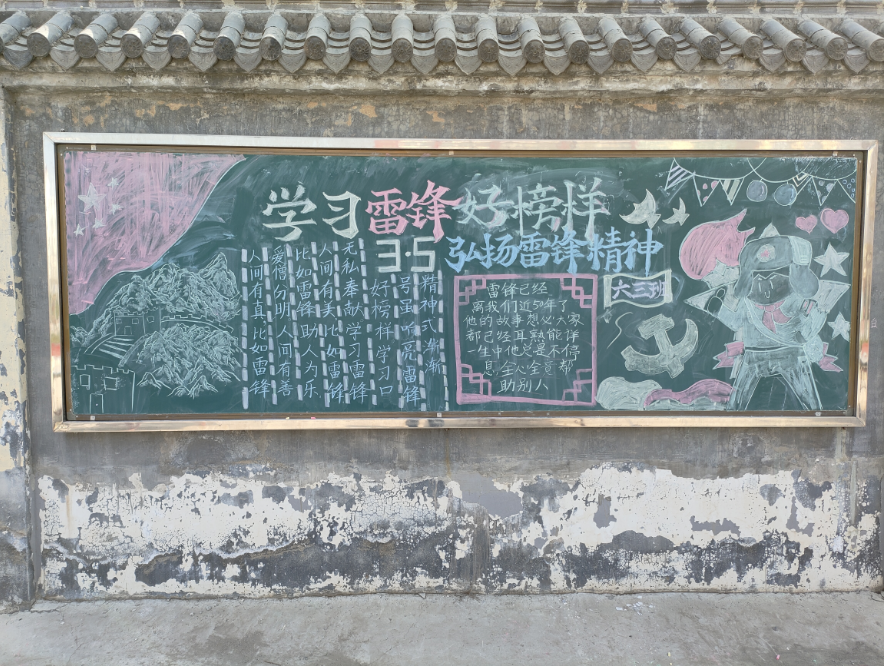 学习雷锋好榜样
3·5
弘扬雷锋精神
人间有真比如雷锋
爱憎分明人间有善
比如雷锋助人为乐
人间有美比如雷锋
无私奉献学习雷锋
好榜样学习口
号虽响亮雷锋
精神式渐渐
雷锋已经
离我们近50年了
他的故事想必大家
都已经耳熟能详
一生中他总是不停
息全心全意帮
助别人
六三班